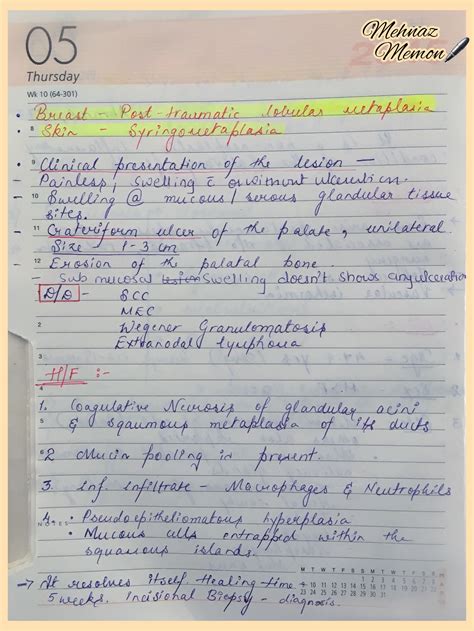 Mehnaz
Memon
05
Thursday
Wk 10 (64-301)
• Breast - Post-traumatic lobular metaplasia
8 Skin - Syringometaplasia
• 9 Clinical presentation of the lesion —
- Painless, swelling c̄ or without ulceration.
- 10 Swelling @ mucous / serous glandular tissue
sites.
- 11 Crateriform ulcer of the palate, unilateral
Size - 1-3 cm
- 12 Erosion of the palatal bone
- Sub mucosal swelling doesn't shows any ulceration
D/D - SCC
MEC
2 Wegener Granulomatosis
Extranodal lymphoma
3
H/F :-
4
1. Coagulative Necrosis of glandular acini
5 & sqaumous metaplasia of its ducts
6 2 Mucin pooling is present.
3. Inf infiltrate - Macrophages & Neutrophils
4. • Pseudoepitheliomatous hyperplasia
NOTES
• Mucous cells entrapped within the
squamous islands.
M T W T F S S M T W T F S S
→ It resolves itself. Healing time -
5 weeks. Incisional Biopsy - diagnosis.